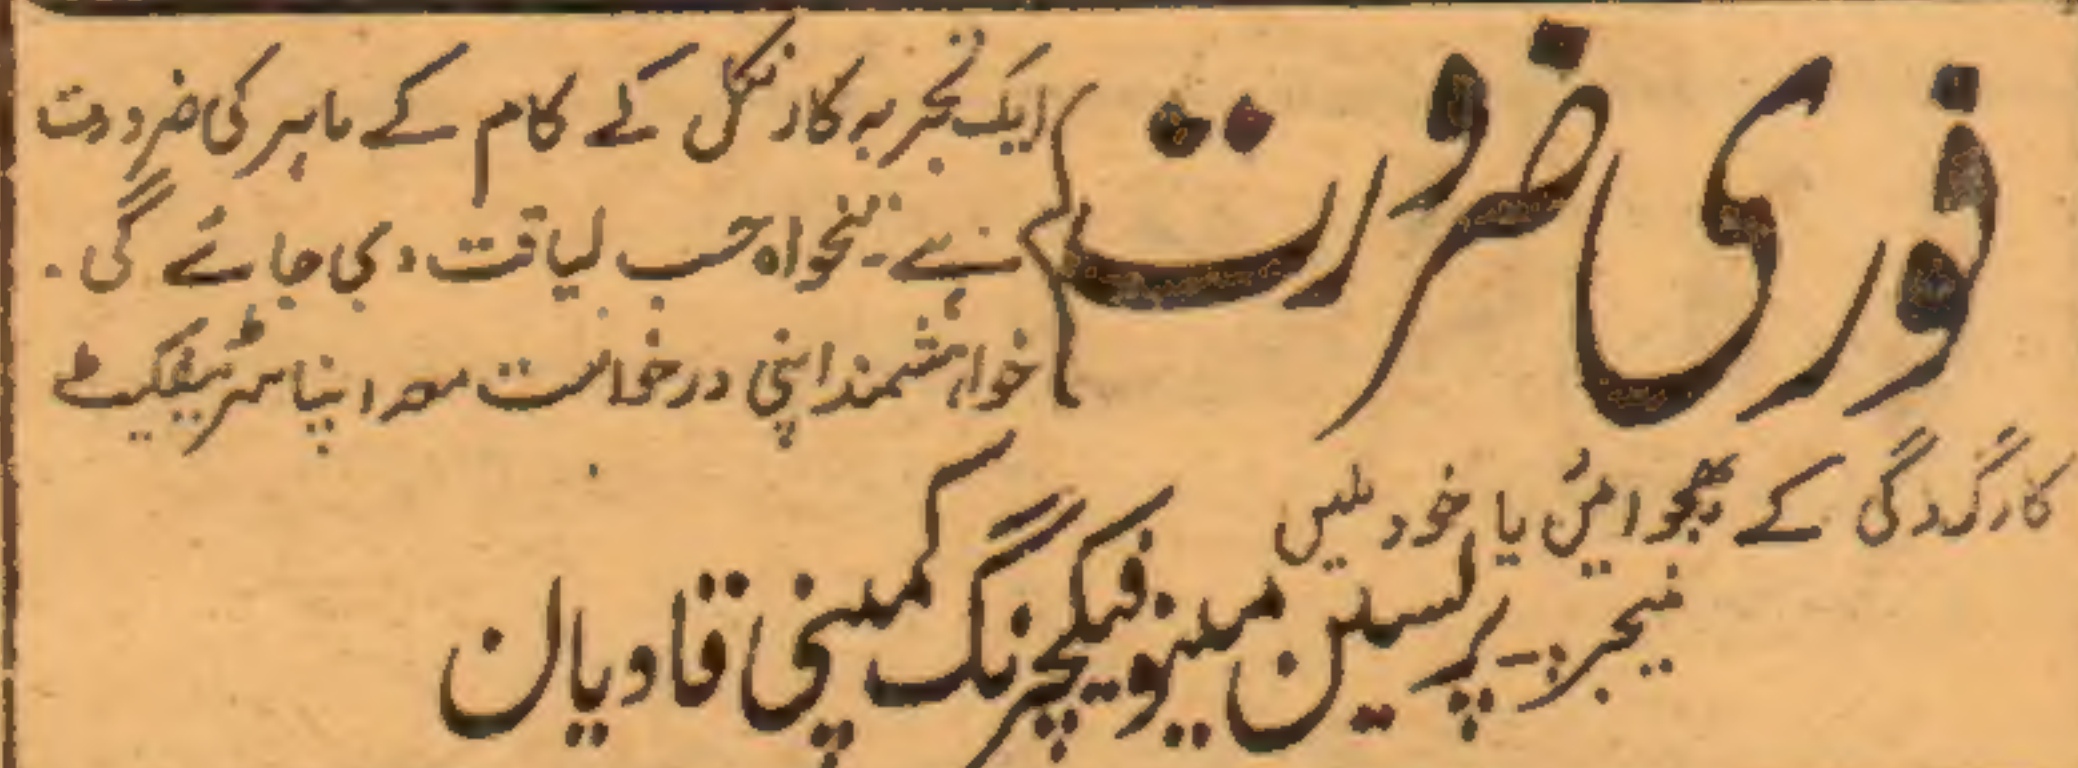 فوری ضرورت
ایک تجربہ کار نکل کے کام کے ماہر کی ضرورت
ہے۔ تنخواہ حسب لیاقت دی جائے گی۔
خواہشمند اپنی درخواست معہ اپنا سرٹیفکیٹ
کارکردگی کے بھجوائیں یا خود ملیں
منیجر:۔ پریسین مینوفیکچرنگ کمپنی قادیان